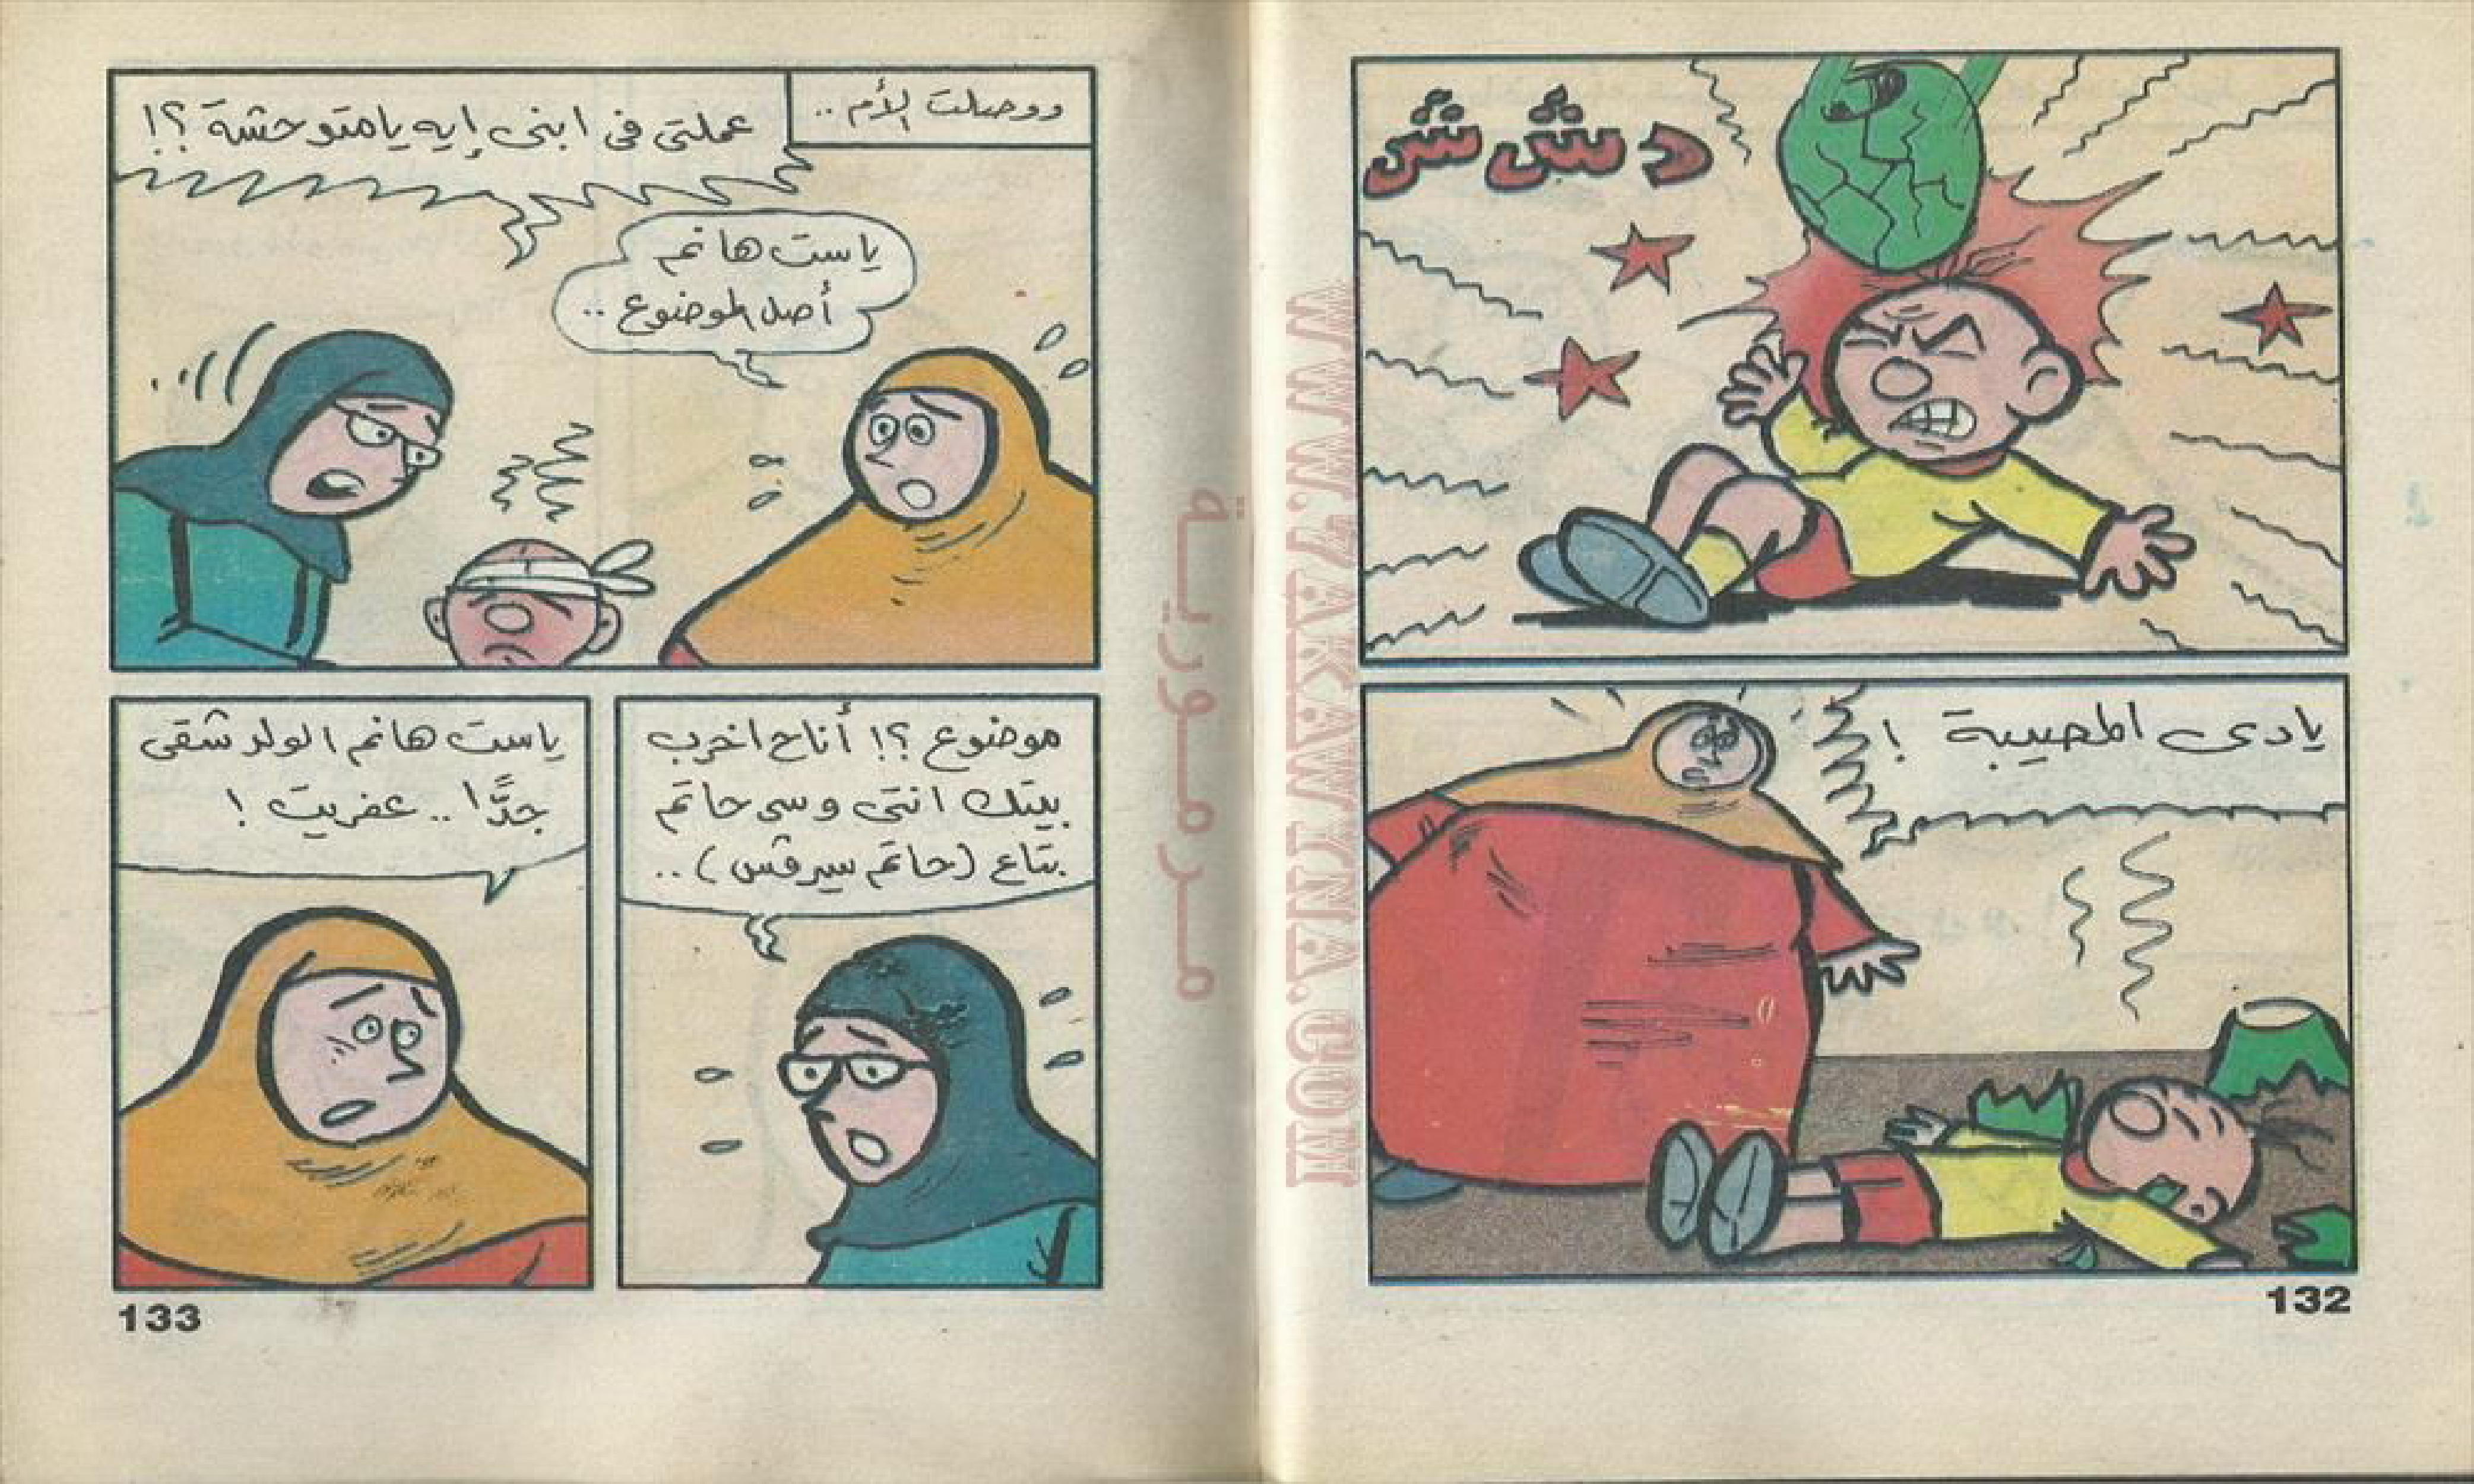 دش ش ش
يادى المصيبة !
132
ووصلت الأم ..
عملتى فى ابنى إيه يا متوحشة ؟!
ياست هانم
أصل الموضوع ..
موضوع ؟! أنا ح اخرب
بيتك انتى وسى حاتم
بتاع (حاتم سيرفس) ..
ياست هانم الولد شقى
جدًّا .. عفريت !
133
مـرمـوريـة